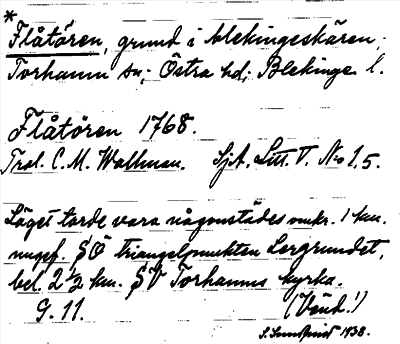 *
Flåtören, grund i Blekingeskären;
Torhamn sn; Östra hd; Blekinge l.
Flåtören 1768.
Trol. C. M. Wallman. SjA. Litt. V. No 1,5.
Läget torde vara någonstädes omkr. 1 km.
ungef. SÖ triangelpunkten Lergrundet,
bel. 2 1/2 km. SV Torhamns kyrka.
G. 11. (Vänd!)
S. Sundqvist 1938.